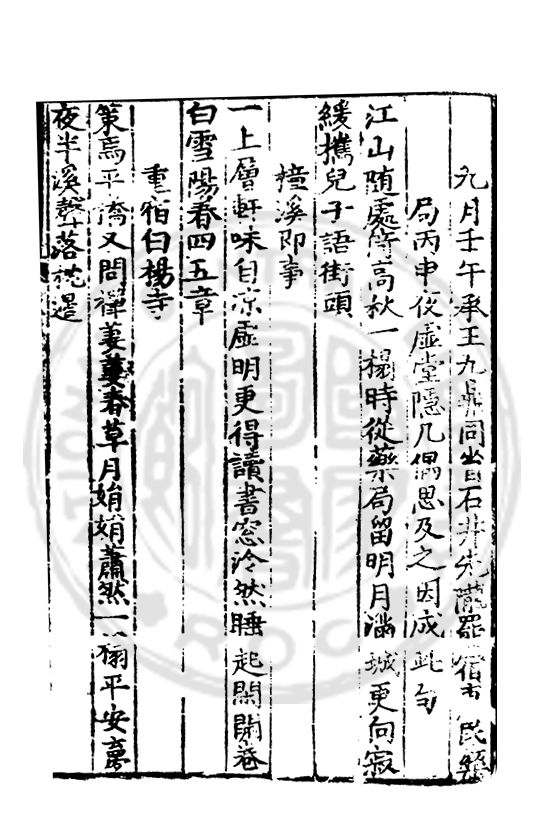 九月壬午承王九鼎同省石井先隴罷宿市民藥
局丙申夜虛堂隱几偶思及之因成此句
江山隨處節高秋一榻時從藥局留明月滿城更向寂
緩攜兒子語街頭
橦溪即事
一上層軒味自凉虛明更得讀書窓泠然睡起閑開巷
白雪陽春四五章
重宿白楊寺
策馬平橋又問禪萋萋春草月娟娟蕭然一榻平安夢
夜半溪聲落枕邊